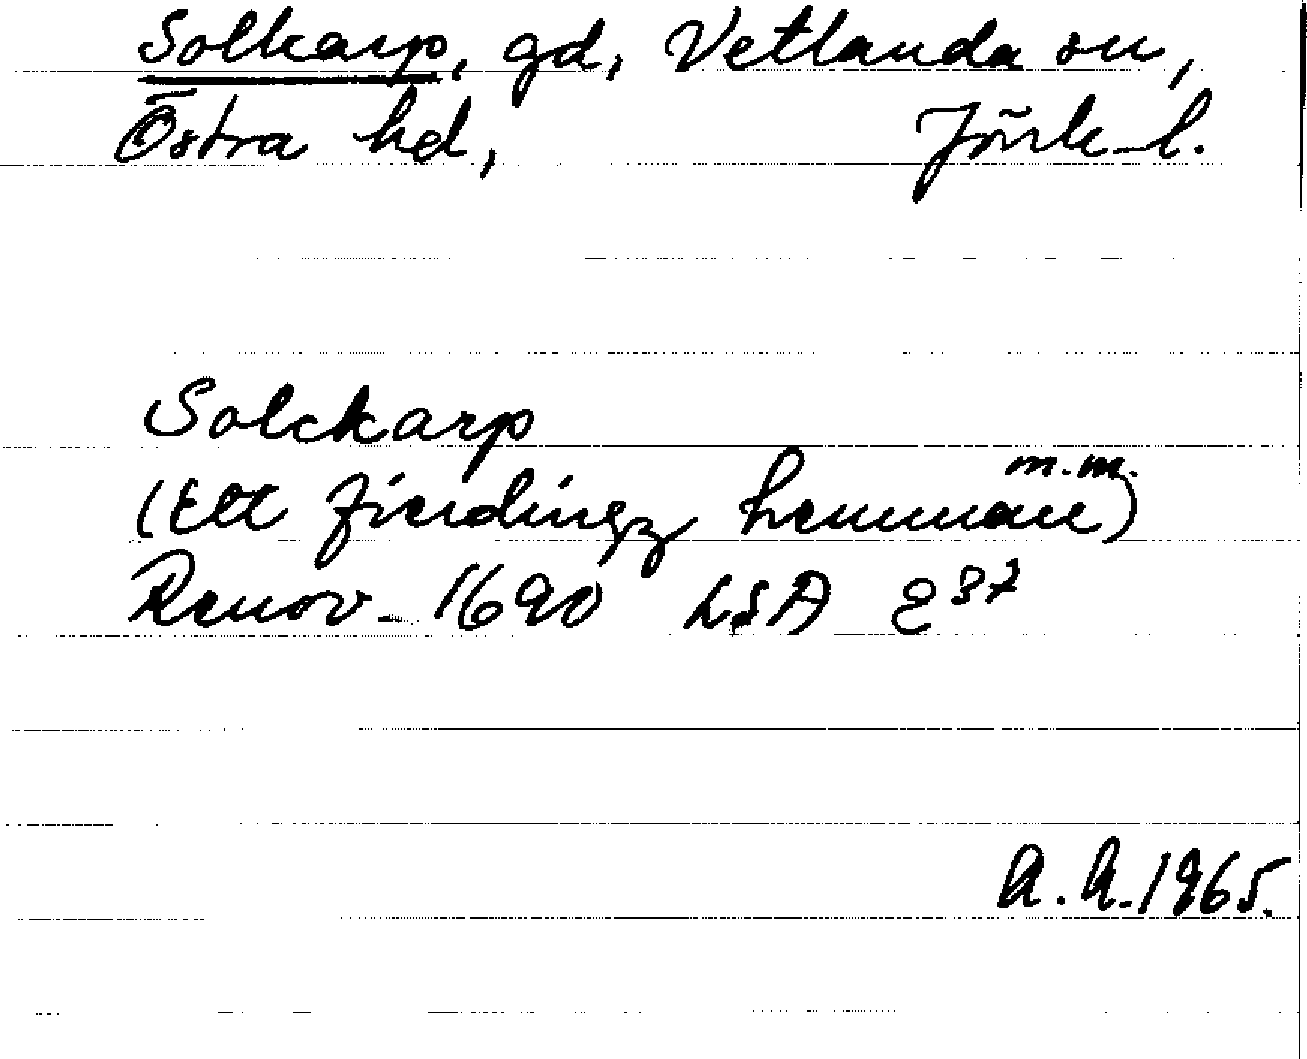 Solkarp, gd, Vetlanda sn,
Östra hd, Jönk. l.
Solckarp
(Ett fierdingz hemman m.m.)
Renov. 1690 LSA E37
A.A. 1965.